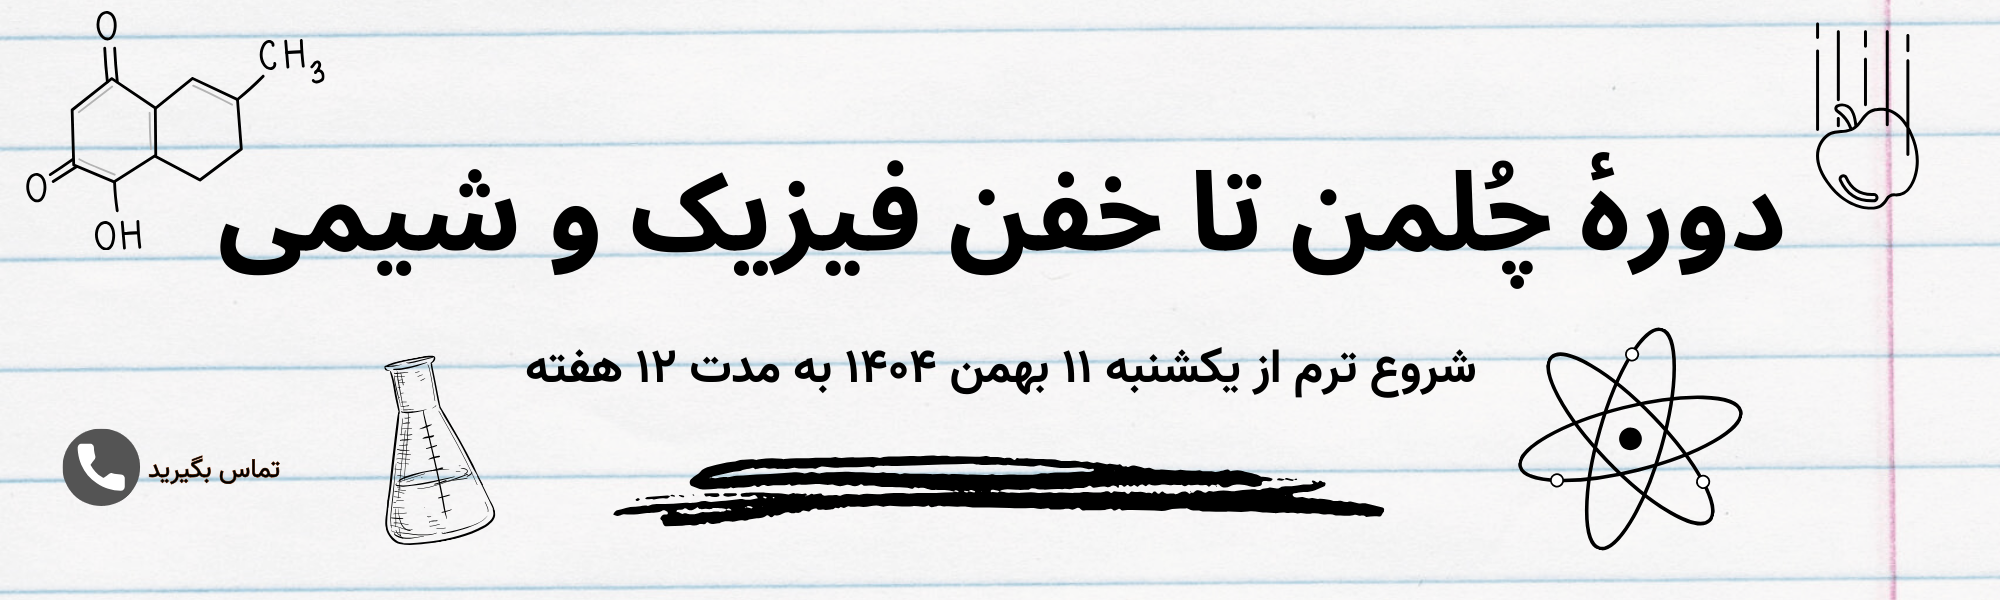 دورهٔ چُلمن تا خفن فیزیک و شیمی
شروع ترم از یکشنبه ۱۱ بهمن ۱۴۰۴ به مدت ۱۲ هفته
تماس بگیرید
O
CH3
O
OH